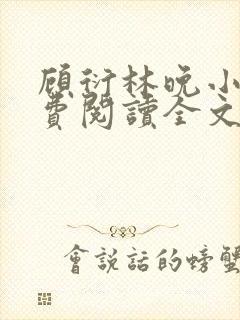 顾衍林晚小
費閱讀全文
會說話的螃蟹